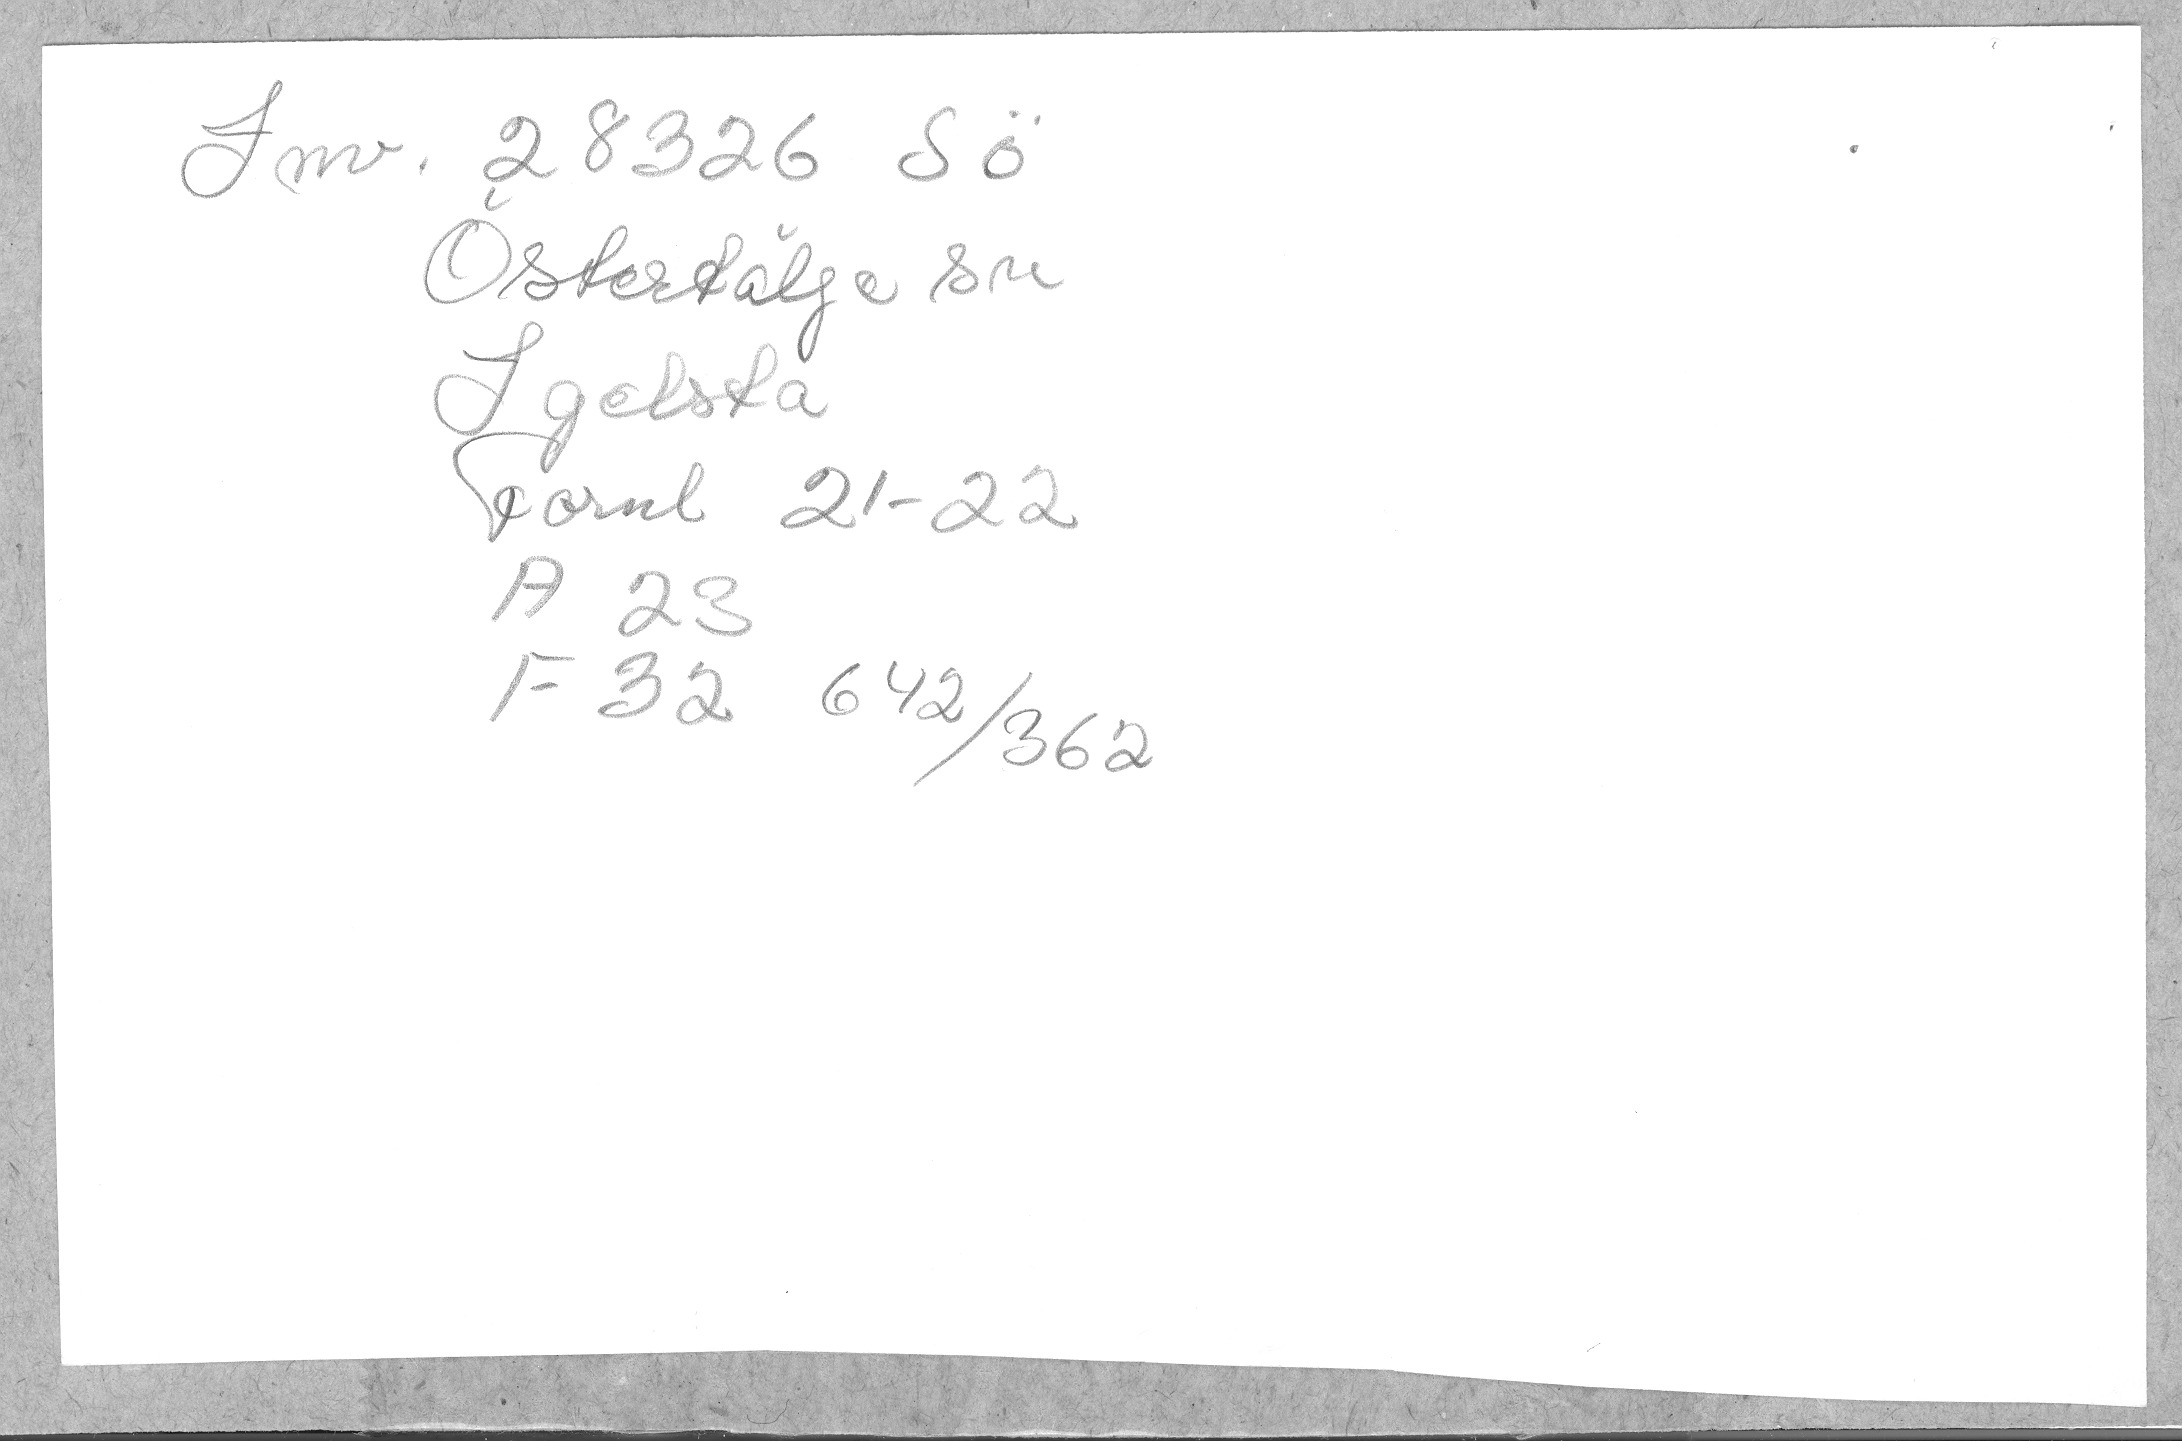 Inv. 28326 Sö
Östertälge sn
Igelsta
Fornl 21-22
A 23
F 32 642/362